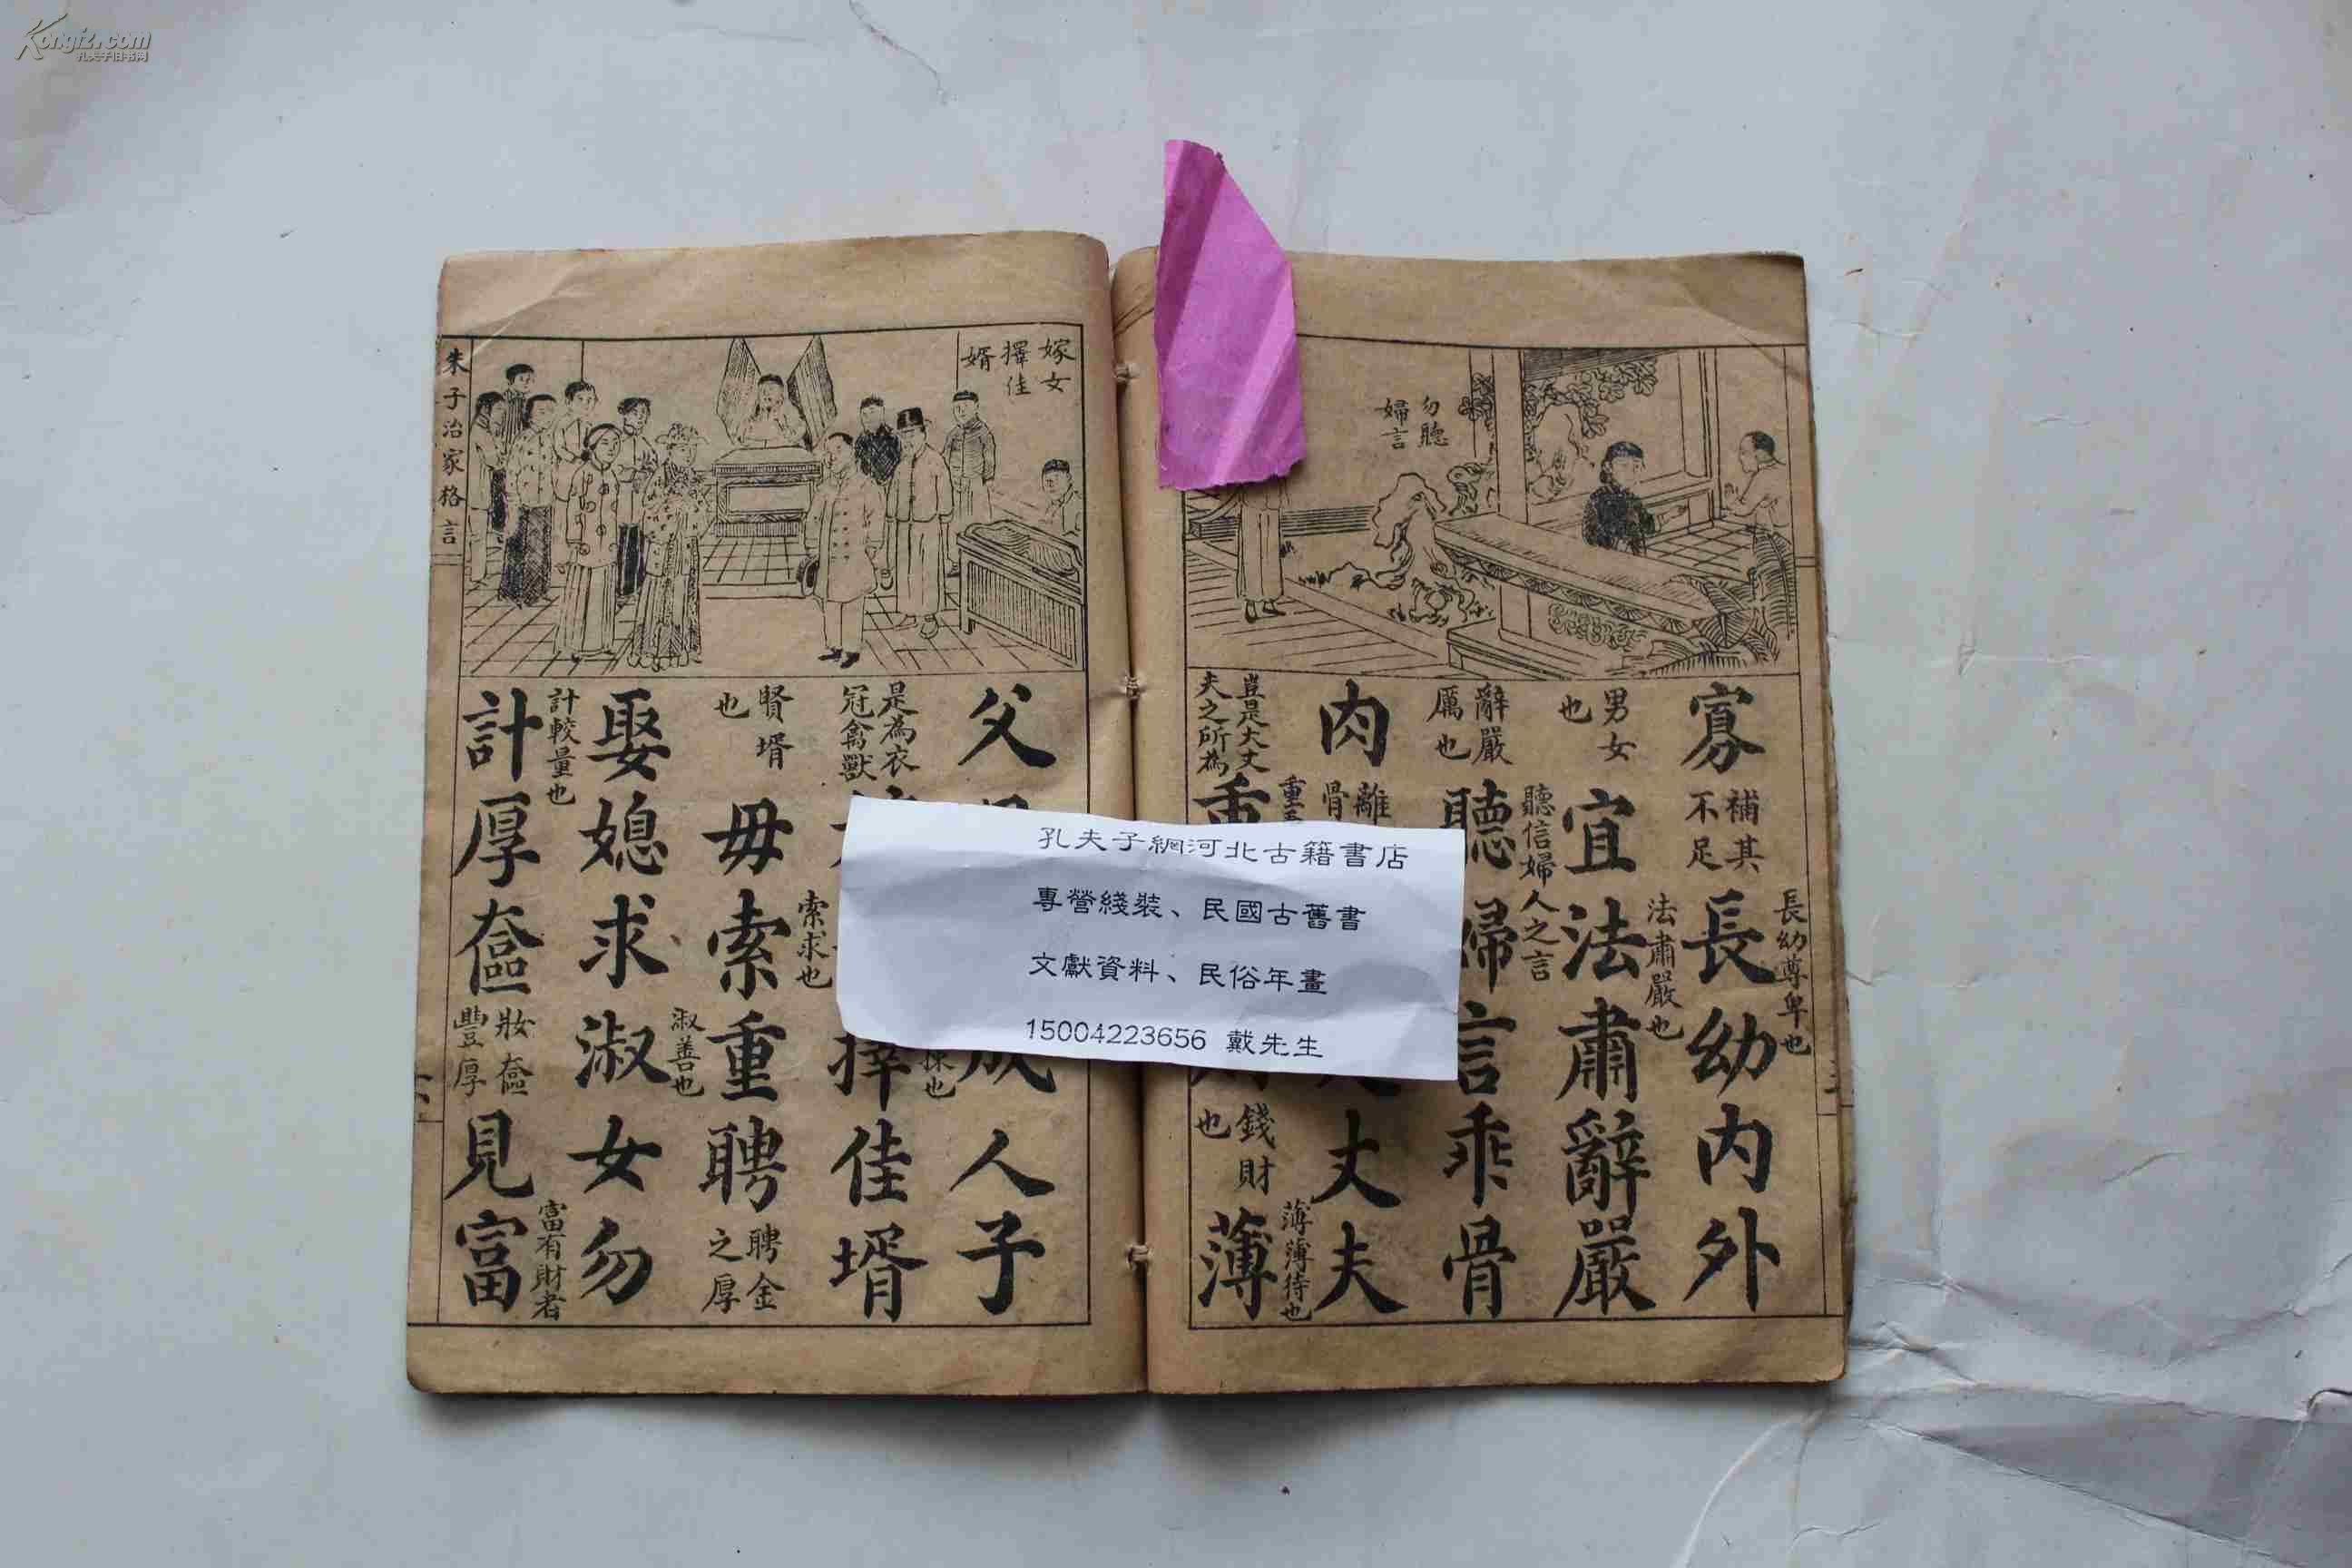 Kongfz.com
孔夫子旧书网
勿聽
婦言
寡
補其
不足
長幼內外
長幼尊卑也
男女
也
宜法肅辭嚴
法肅嚴也
辭嚴
厲也
聽婦言乖骨
聽信婦人之言
肉
離
骨
丈夫
豈是大丈
夫之所為
重
錢財
也
薄
薄薄待也
孔夫子網河北古籍書店
專營綫裝、民國古舊書
文獻資料、民俗年畫
15004223656 戴先生
嫁女
擇佳
婿
朱子治家格言
父
人子
是為衣
冠禽獸
擇佳壻
賢壻
也
毋索重聘
索求也
聘金
之厚
娶媳求淑女勿
淑善也
計厚奩
計較量也
妝奩
豐厚
見富
富有財者